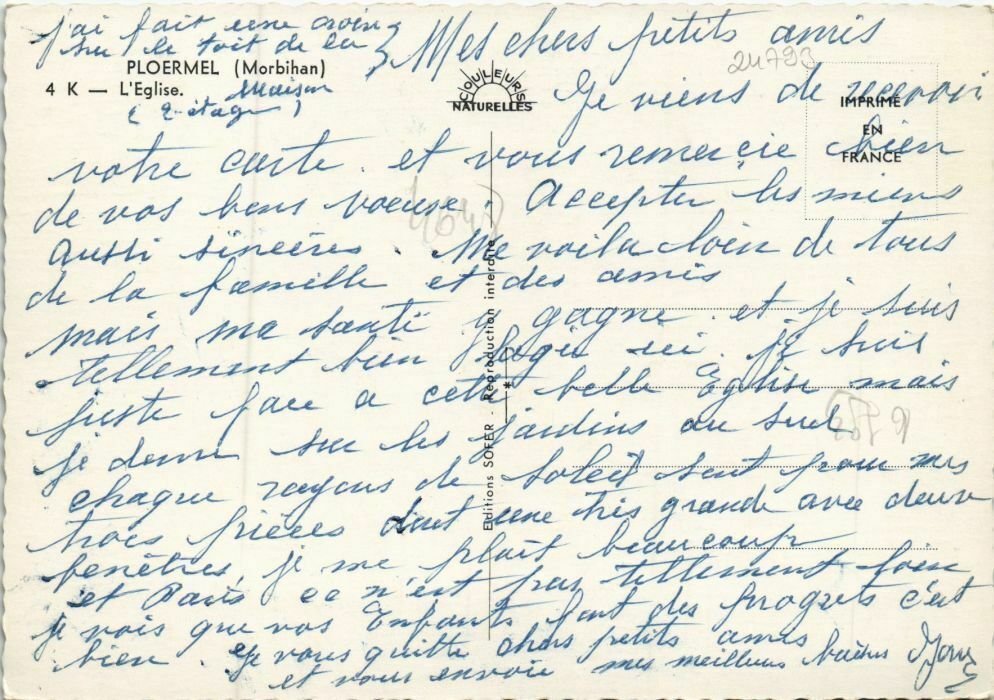 j'ai fait une croix
sur le toit de la
maison
( 2 étage )
PLOERMEL (Morbihan)
4 K — L'Eglise.
COULEURS
NATURELLES
IMPRIMÉ
EN
FRANCE
24793
Editions SOFER - Reproduction interdite
Mes chers petits amis
Je viens de recevoir
votre carte. et vous remercie bien
de vos bons voeux. Accepter les miens
aussi sincères. Me voila loin de tous
de la famille et des amis
mais ma santé y gagne. et je suis
tellement bien logée ici. je suis
juste face a cette belle Eglise mais
je donne sur les jardins au sud
chaque rayons de soleil sont pour mes
trois pièces dont une très grande avec deux
fenêtres, je me plait beaucoup
et Paris ce n'est pas tellement loin
je vois que vos Enfants font des progrets c'est
bien. Je vous quitte chers petits amis
et vous envoie mes meilleurs baisers